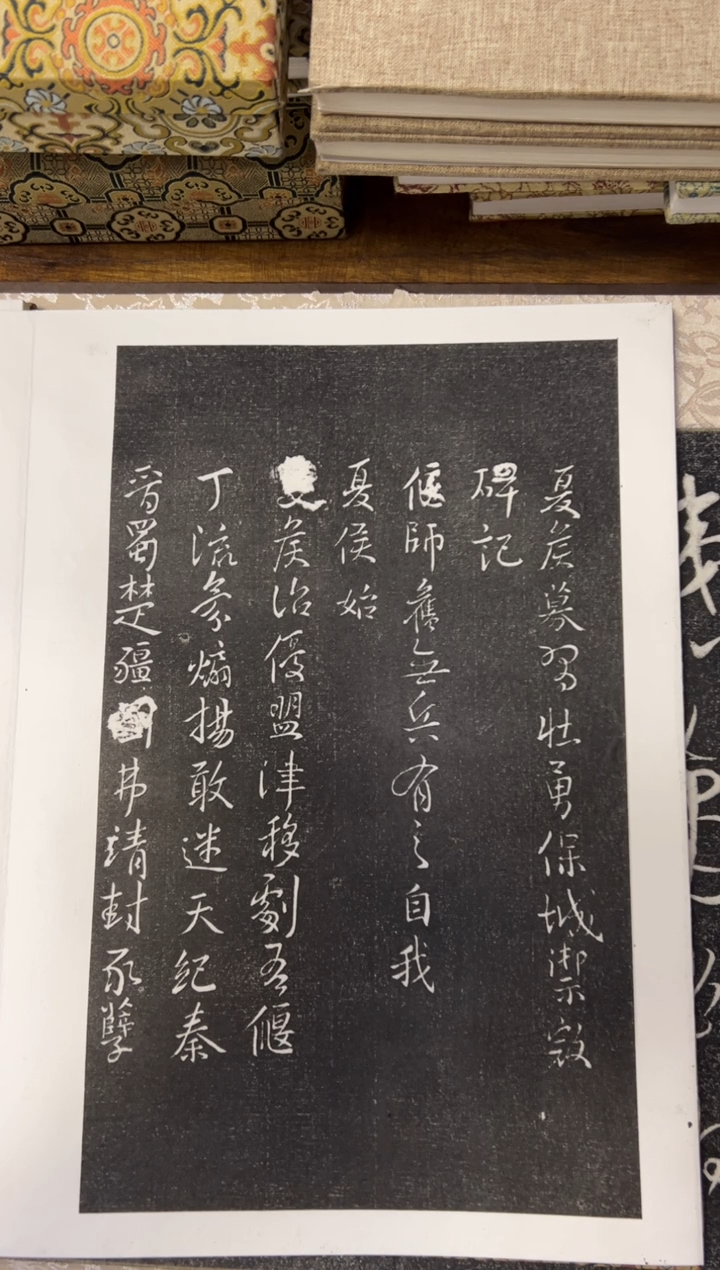 夏侯募習壯勇保城禦寇
碑記
偃師舊無兵有之自我
夏侯始
夏侯治優盟津移劇吾偃
丁流氛煽揚敢迷天紀秦
晉蜀楚疆 弗靖封豕孽